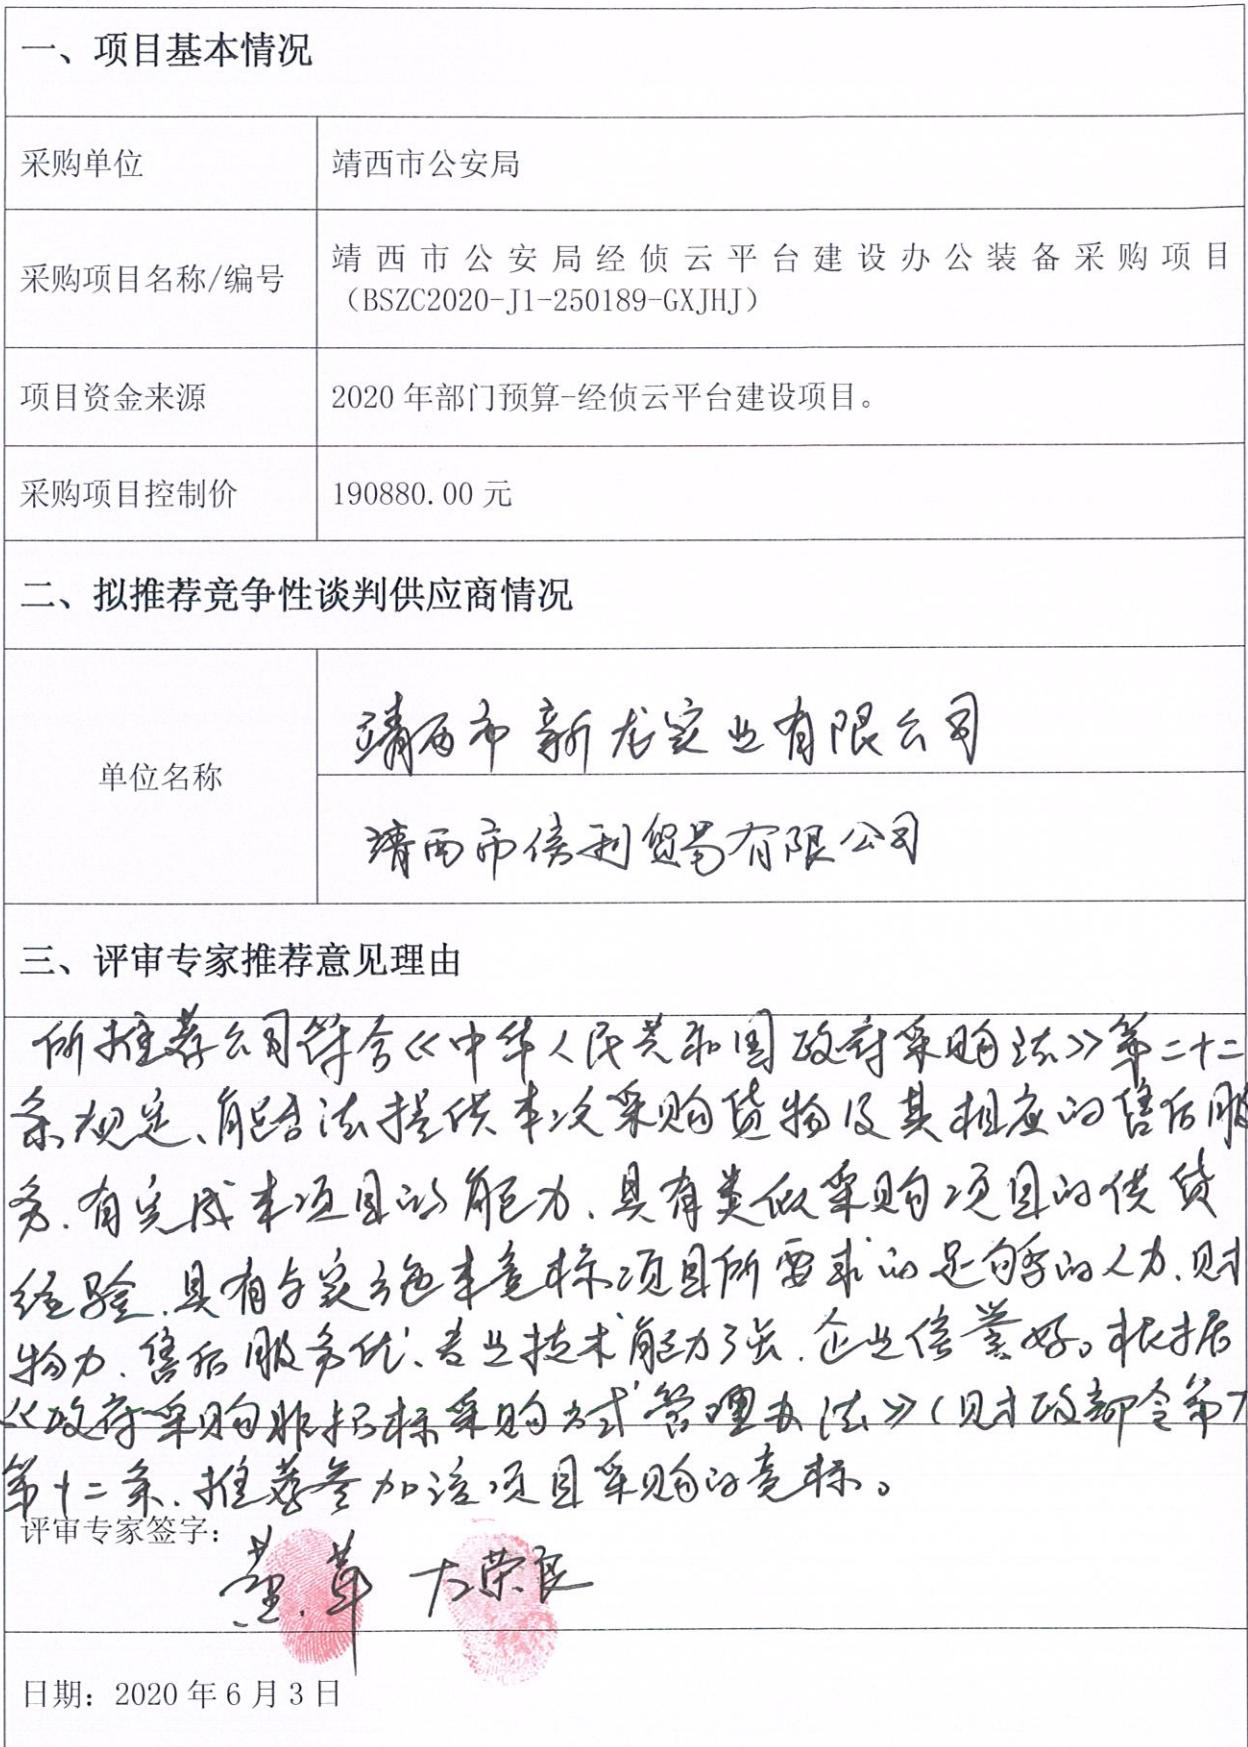 一、项目基本情况
采购单位
靖西市公安局
采购项目名称/编号
靖西市公安局经侦云平台建设办公装备采购项目
（BSZC2020-J1-250189-GXJHJ）
项目资金来源
2020 年部门预算-经侦云平台建设项目。
采购项目控制价
190880.00 元
二、拟推荐竞争性谈判供应商情况
单位名称
靖西市新龙实业有限公司
靖西市倍利贸易有限公司
三、评审专家推荐意见理由
所推荐公司符合《中华人民共和国政府采购法》第二十二
条规定、能合法提供本次采购货物及其相应的售后服
务、有完成本项目的能力、具有类似采购项目的供货
经验、具有与实施本竞标项目所要求的足够的人力、财
物力、售后服务优、专业技术能力强、企业信誉好。根据
《政府采购非招标采购方式管理办法》（财政部令第7
第十二条、推荐参加该项目采购的竞标。
评审专家签字：
日期：2020 年 6 月 3 日